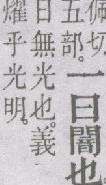 佩切
五部。
一曰闇也
日無光也。義
燿乎光明。